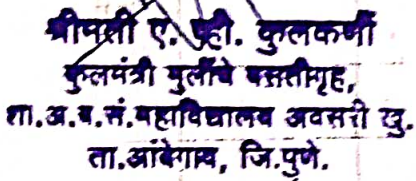 श्रीमती ए. व्ही. कुलकर्णी
कुलमंत्री मुलींचे वसतीगृह,
शा.अ.व.तं.महाविद्यालय अवसरी खु.
ता.आंबेगाव, जि.पुणे.